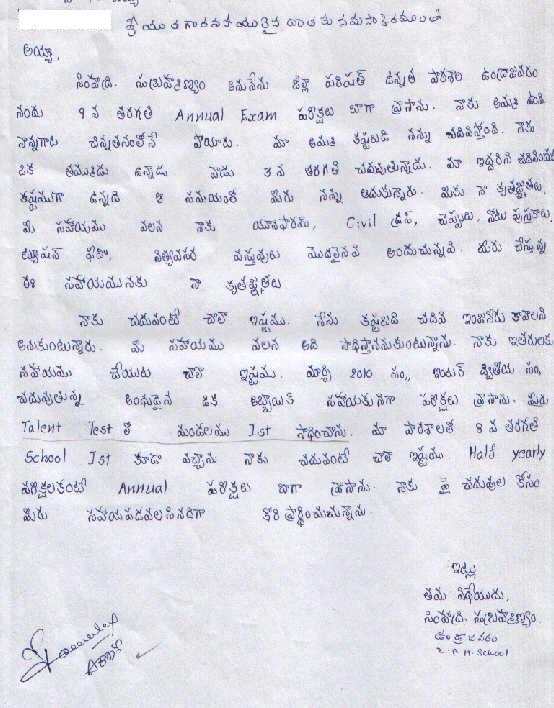 శ్రీయుత గౌరవనీయులైన దాతకు నమస్కారములతో
అయ్యా,
సింహాద్రి. సుబ్రహ్మణ్యం అనునేను జిల్లా పరిషత్ ఉన్నత పాఠశాల ఉండ్రాజవరం
నందు 9 వ తరగతి Annual Exam పరీక్షలు బాగా వ్రాసాను. నాకు అమ్మ ఉంది
నాన్నగారు చిన్నతనంలోనే పోయారు. మా అమ్మ కష్టపడి నన్ను చదివిస్తోంది. నాకు
ఒక తమ్ముడు ఉన్నాడు వాడు 3 వ తరగతి చదువుతున్నాడు. మా ఇద్దరిని చదివించుట
కష్టముగా ఉన్నది ఆ సమయంలో మీరు నన్ను ఆదుకున్నారు. మీకు నా కృతజ్ఞతలు,
మీ సహాయము వలన నాకు యూనిఫారము, Civil డ్రస్, చెప్పులు, నోటు పుస్తకాలు,
ట్యూషన్ ఫీజు, నిత్యావసర వస్తువులు మొదలైనవి అందుచున్నవి. మీరు చేస్తున్న
ఈ సహాయమునకు నా కృతజ్ఞతలు
నాకు చదువంటే చాలా ఇష్టము. నేను కష్టపడి చదివి ఇంజనీరు కావాలని
అనుకుంటున్నాను. మీ సహాయము వలన అది సాధిస్తాననుకుంటున్నాను. నాకు ఇతరులకు
సహాయము చేయుట చాలా ఇష్టము. మార్చి 2010 సం,, ఇంటర్ ద్వితీయ సం,
చదువుతున్న అంధుడైన ఒక అబ్బాయికి సహాయకునిగా పరీక్షలు వ్రాసాను. మరియు
Talent Test లో మండలము Ist సాధించాను. మా పాఠశాలలో 8 వ తరగతి
School Ist కూడా వచ్చాను నాకు చదువంటే చాలా ఇష్టము Half yearly
పరీక్షలకంటే Annual పరీక్షలు బాగా వ్రాసాను. నాకు పై చదువుల కోసం
మీరు సహాయపడవలసినదిగా కోరి ప్రార్థించుచున్నాను
ఇట్లు
తమ విధేయుడు,
సింహాద్రి. సుబ్రహ్మణ్యం.
ఉండ్రాజవరం
Z.P.H.School